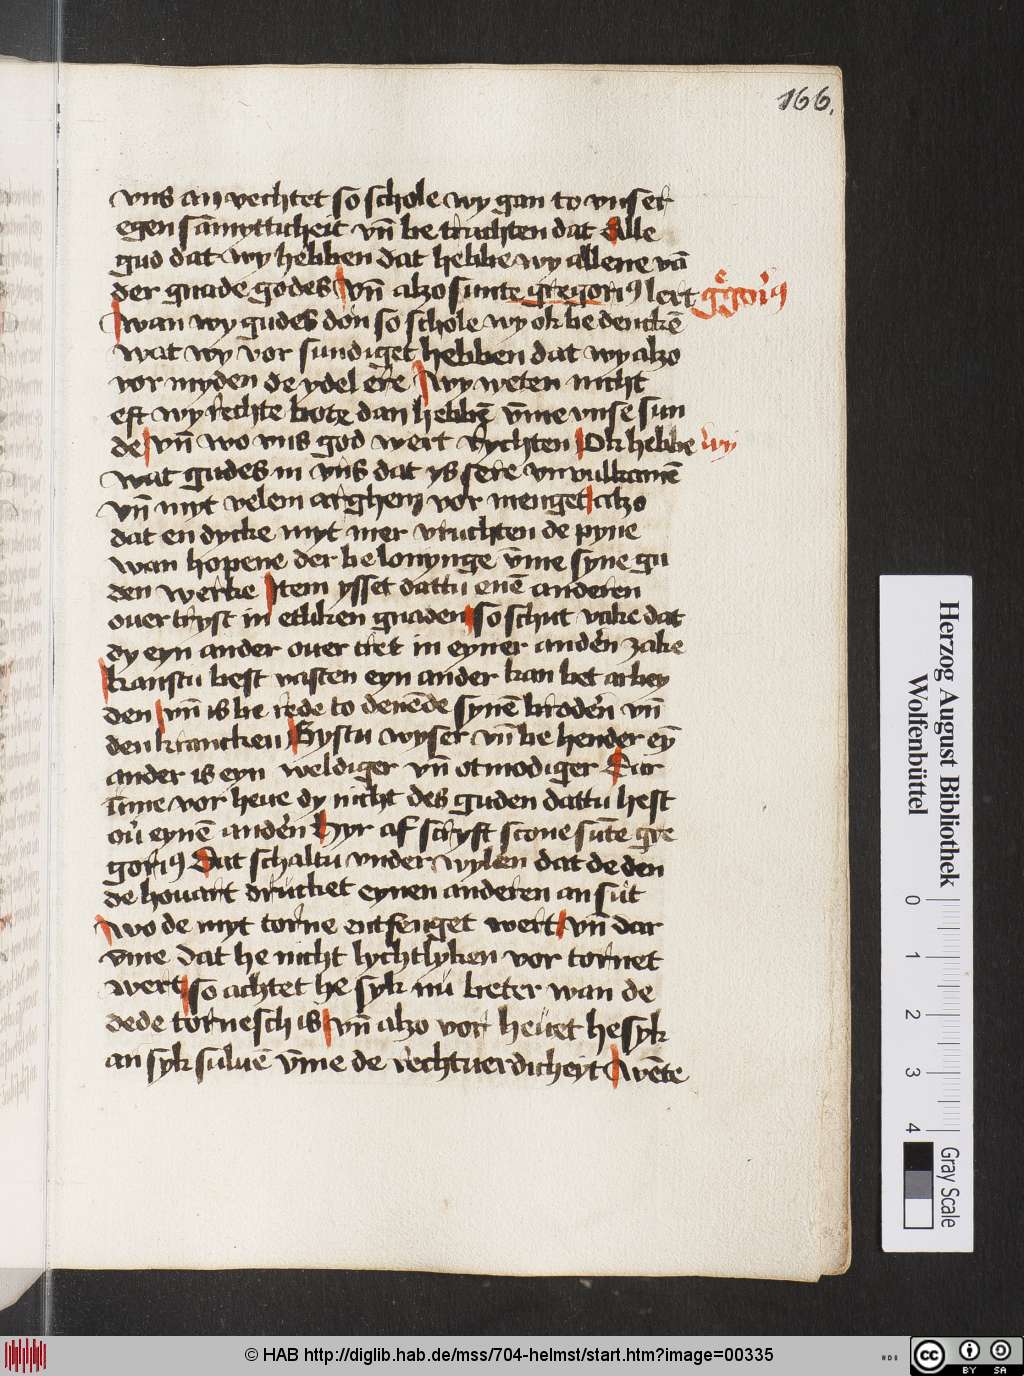 166.
vns an vechtet so schole wy gan to vnser
egen sāmytticheit vn̄ be trachten dat Alle
gud dat wy hebben dat hebbe wy allene vā
der gnade godes vn̄ alzo sunte gregori⁹ lert
g̊gori⁹
wan wy gudes don so schole wy ok be denckē
wat wy vor sundiget hebben dat wy alzo
vor myden de ydel ere wy weten nicht
eft wy rechte bote dan hebbē v̄me vnse sun
de vn̄ wo vns god wert rychten Ok hebbe wy
wat gudes in vns dat ys sere vn vulkamē
vn̄ myt velem arghem vor menget alzo
dat en dycke myt mer vruchten de pyne
wan hopene der be lonynge v̄me syne gu
den werke Item ysset dattu enē anderen
ouer tryst in etliken gnaden so schut vake dat
dy eyn ander ouer tret in eyner anderen zake
kanstu best vasten eyn ander kan bet arbey
den vn̄ is be rede to denēde synē broderen vn̄
den krancken Bystu wyser vn̄ be hender eȳ
ander is eyn weldiger vn̄ otmodiger Dar
v̄me vor heue dy nicht des guden dattu hest
ou̓ eynē anderen Hyr af scryft scone sūte gre
gori⁹ Dat schaltu vnder wylen dat de den
de houart drucket eynen anderen an sut
wo de myt torne entfenget wert vn̄ dar
v̄me dat he nicht lychtlyken vor tornet
wert so achtet he syk nu beter wan de
dede tornesch is vn̄ alzo vor heuet he syk
an syk suluē v̄me de rechtuerdicheyt wēte
Herzog August Bibliothek
Wolfenbüttel
0 1 2 3 4
Gray Scale
© HAB http://diglib.hab.de/mss/704-helmst/start.htm?image=00335
HAB
cc BY SA